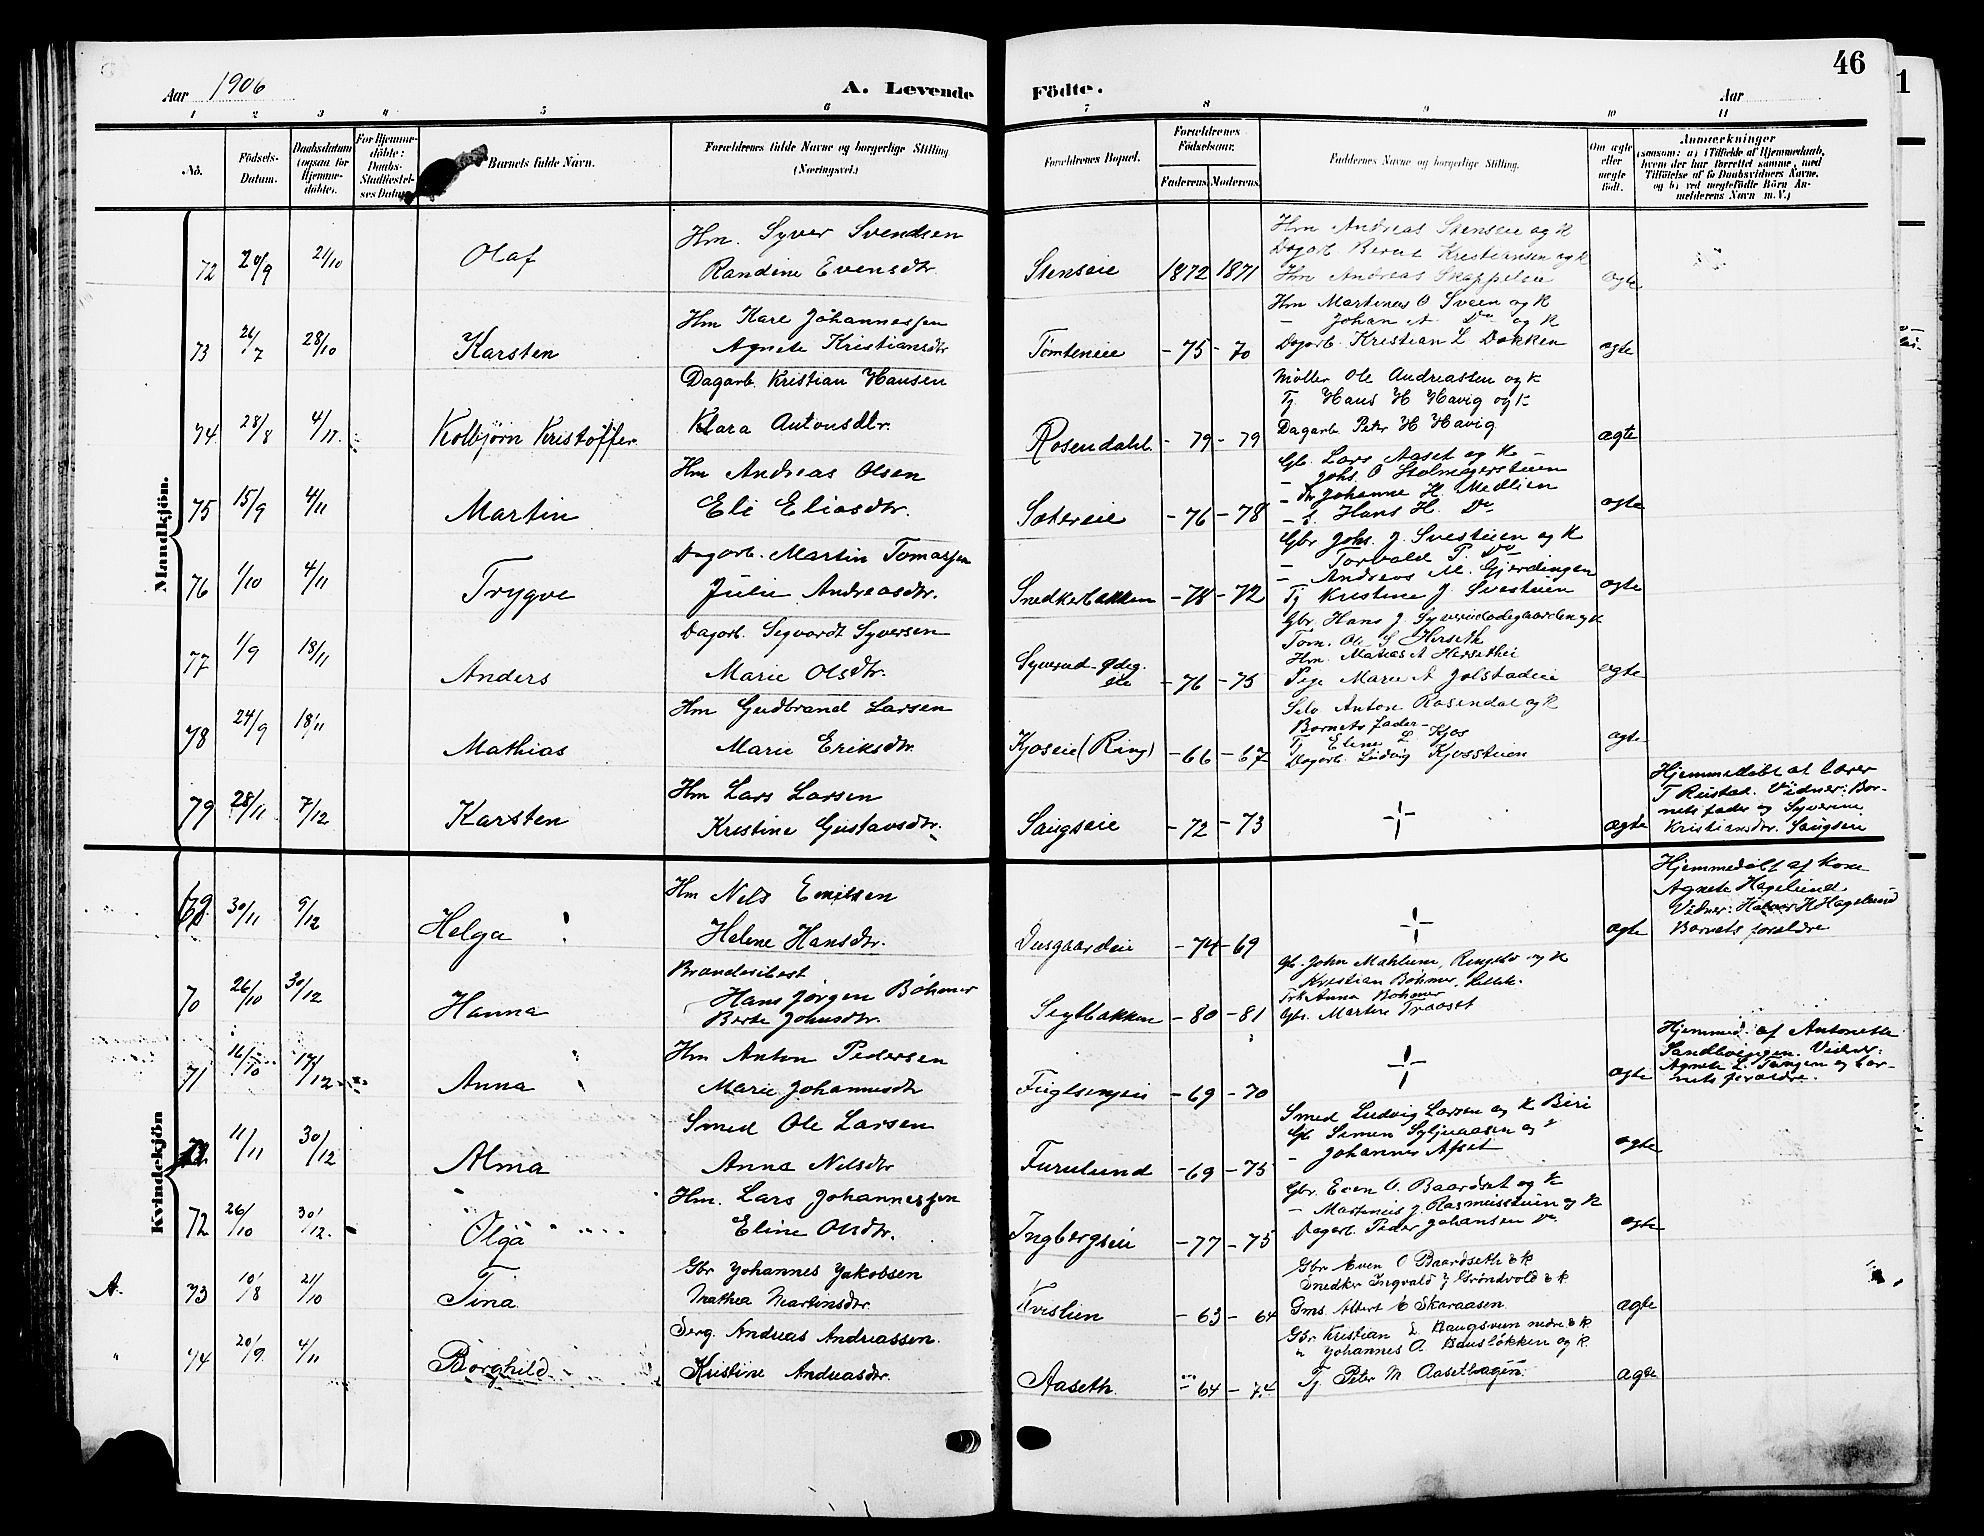 46
Aar 1906
A. Levende Födte.
Aar
1 2 3 4 5 6 7 8 9 10 11
No.
Födsels-Datum.
Daabsdatum (ogsaa for Hjemme-döbte).
For Hjemme-döbte: Daabs-Stadfæstel-ses Datum.
Barnets fulde Navn.
Forældrenes fulde Navne og borgerlige Stilling (Næringsvei.)
Forældrenes Bopæl.
Forældrenes Födselsaar.
Faderens. Moderens.
Faddernes Navne og borgerlige Stilling.
Om ægte eller uægte födt.
Anmærkninger
(saasom: a) i Tilfælde af Hjemmedaab, hvem der har forrettet samme, med Tilföielse af to Daabsvidners Navne, og b) ved uægtefödte Börn An-melderens Navn m. V.)
Mandkjön.
72 20/9 21/10 Olaf Hm. Syver Svendsen
Randine Evensdtr. Stenseie 1872 1871 ægte
Hm Andreas Stenseie og K
Dagarb. Bernt Kristiansen og K
Hm Andreas Skappeleie
73 26/7 28/10 Karsten Hm Kare Johannessen
Agnete Kristiansdtr Tomteneie -75 -70 ægte
Hm Martinus O Sveen og K
- Johan A Do og K
Dagarb. Kristian L Dokken
74 28/8 4/11. Kolbjörn Kristoffer. Dagarb. Kristian Hansen
Klara Antonsdtr. Rosendahl -79 -79 ægte
Møller Ole Andreassen og K
Tj. Hans H Havig og K
Dagarb. Peter H Havig
75 15/9 4/11 Martin Hm Andreas Olsen
Eli Eliasdtr. Sætereie -76 -78 ægte
Gb. Lars Aaset og K
- Johs. O Stolmagerstuen
- Johanne H. Medlien
- Hans H. Do
76 1/10 4/11 Trygve Dagarb. Martin Tomassen
Julie Andreasdtr. Snedkerbakken -78 -72 ægte
Gbr Johs. J. Svestuen og K
- Torvald P. Do
- Andreas M. Gjerdingen
Tj Kristine J. Svestuen
77 1/9 18/11 Anders Dagarb. Sigvardt Syversen
Marie Olsdtr. Syverud-ødeg. eie -76 -75 ægte
Gbr. Hans J. Syverudødegaarden og K
Tom. Ole S Herseth
Hm. Matias A Hersetheie
Pige Marie A Jolstadeie
78 24/9 18/11 Mathias Hm Gudbrand Larsen
Marie Eriksdtr. Kjoseie (Ring) -66 -67 ægte
Selv. Anton Rosendal og K
Barnets fader
Tj Eline L. Kjos
Dagarb. Ludvig Kjosstuen
79 28/11 7/12 Karsten Hm Lars Larsen
Kristine Gustavsdtr. Saugseie -72 -73 ægte
Hjemmedöbt af lærer
T Rustad. Vidner: Bar-
nets fader og Syverine
Kristiansdtr. Saugseie
Kvindekjön
69 30/11 9/12 Helga Hm Nels Emilsen
Helene Hansdtr. Dusgaardeie -74 -69 ægte
Hjemmedöbt af kone
Agnete Hagelund
Vidner: Halvor H Hagelund
Barnets forældre
70 26/10 30/12 Hanna Brændevisbest
Hans Jørgen Böhmer
Berte Johnsdtr. Sigtbakken -80 -81
Gb. John Mæhlum, Ringebo og K
Kristian Böhmer, Lilleh.
Frk Anna Böhmer
Gb. Martin Traaset
71 16/10 17/12 Anna Hm Anton Pedersen
Marie Johannesdtr Fuglsengeie -69 -70 ægte
Hjemmed. af Antonette
Sandbvingen. Vidner:
Agnete L. Tangen og bar-
nets forældre.
11/11 30/12 Alma Smed Ole Larsen
Anna Nilsdtr Furulund -69 -75 ægte
Smed Ludvig Larsen og K Biri
Gb Simen Syljuaasen og
- Johannes Afset
72 26/10 30/12 Olga Hm. Lars Johannessen
Eline Olsdtr. Ingbergseie -77 -75 ægte
Gbr. Even O. Baardset og K
- Martinus J. Rasmusstuen og K
Dagarb. Peder Johansen Do
A. 73 10/8 21/10 Tina Gbr Johannes Jakobsen
Mathea Martinsdtr. Kvistlien -63 -64 ægte
Gbr Even O Baardseth & K
Snedker Ingvald J Gröndvold & K
Gms. Albert E Skaraasen
" 74 20/9 4/11 Borghild Serg. Andreas Andreassen.
Kristine Andreasdtr. Aaseth. -64 -74 ægte
Gbr Kristian L Haugsveen nedre & K.
" Johannes A. Hauslökken og K.
Tj Peter M Aasethagen